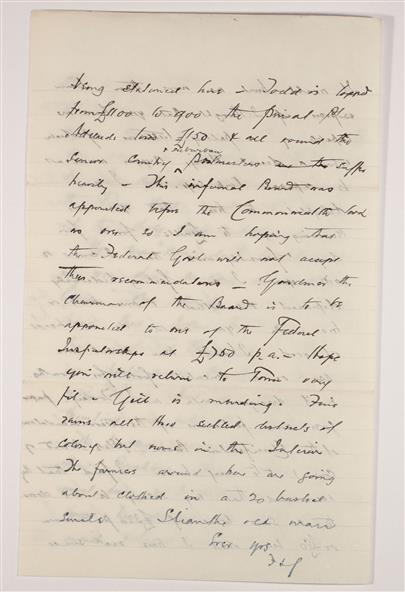 being stationed here – Todd is lopped
from £1100 to 900 the
Adelaide loses £150 & all round the
Senior Country & suburban Postmasters suffer
heavily – This infernal Board was
appointed before the Commonwealth took
us over so I am hoping that
the Federal Govt will not accept
their recommendations – the
Chairman of the Board is to be
appointed to one of the Federal
Inspectorships at £750 p.a. – Hope
you will return to Town very
fit – Gill is mending. Fine
rains all thro settled districts of
Colony but none in the Interior
The farmers around here are going
about clothed in a 20 bushel
smile. old man
Ever yrs